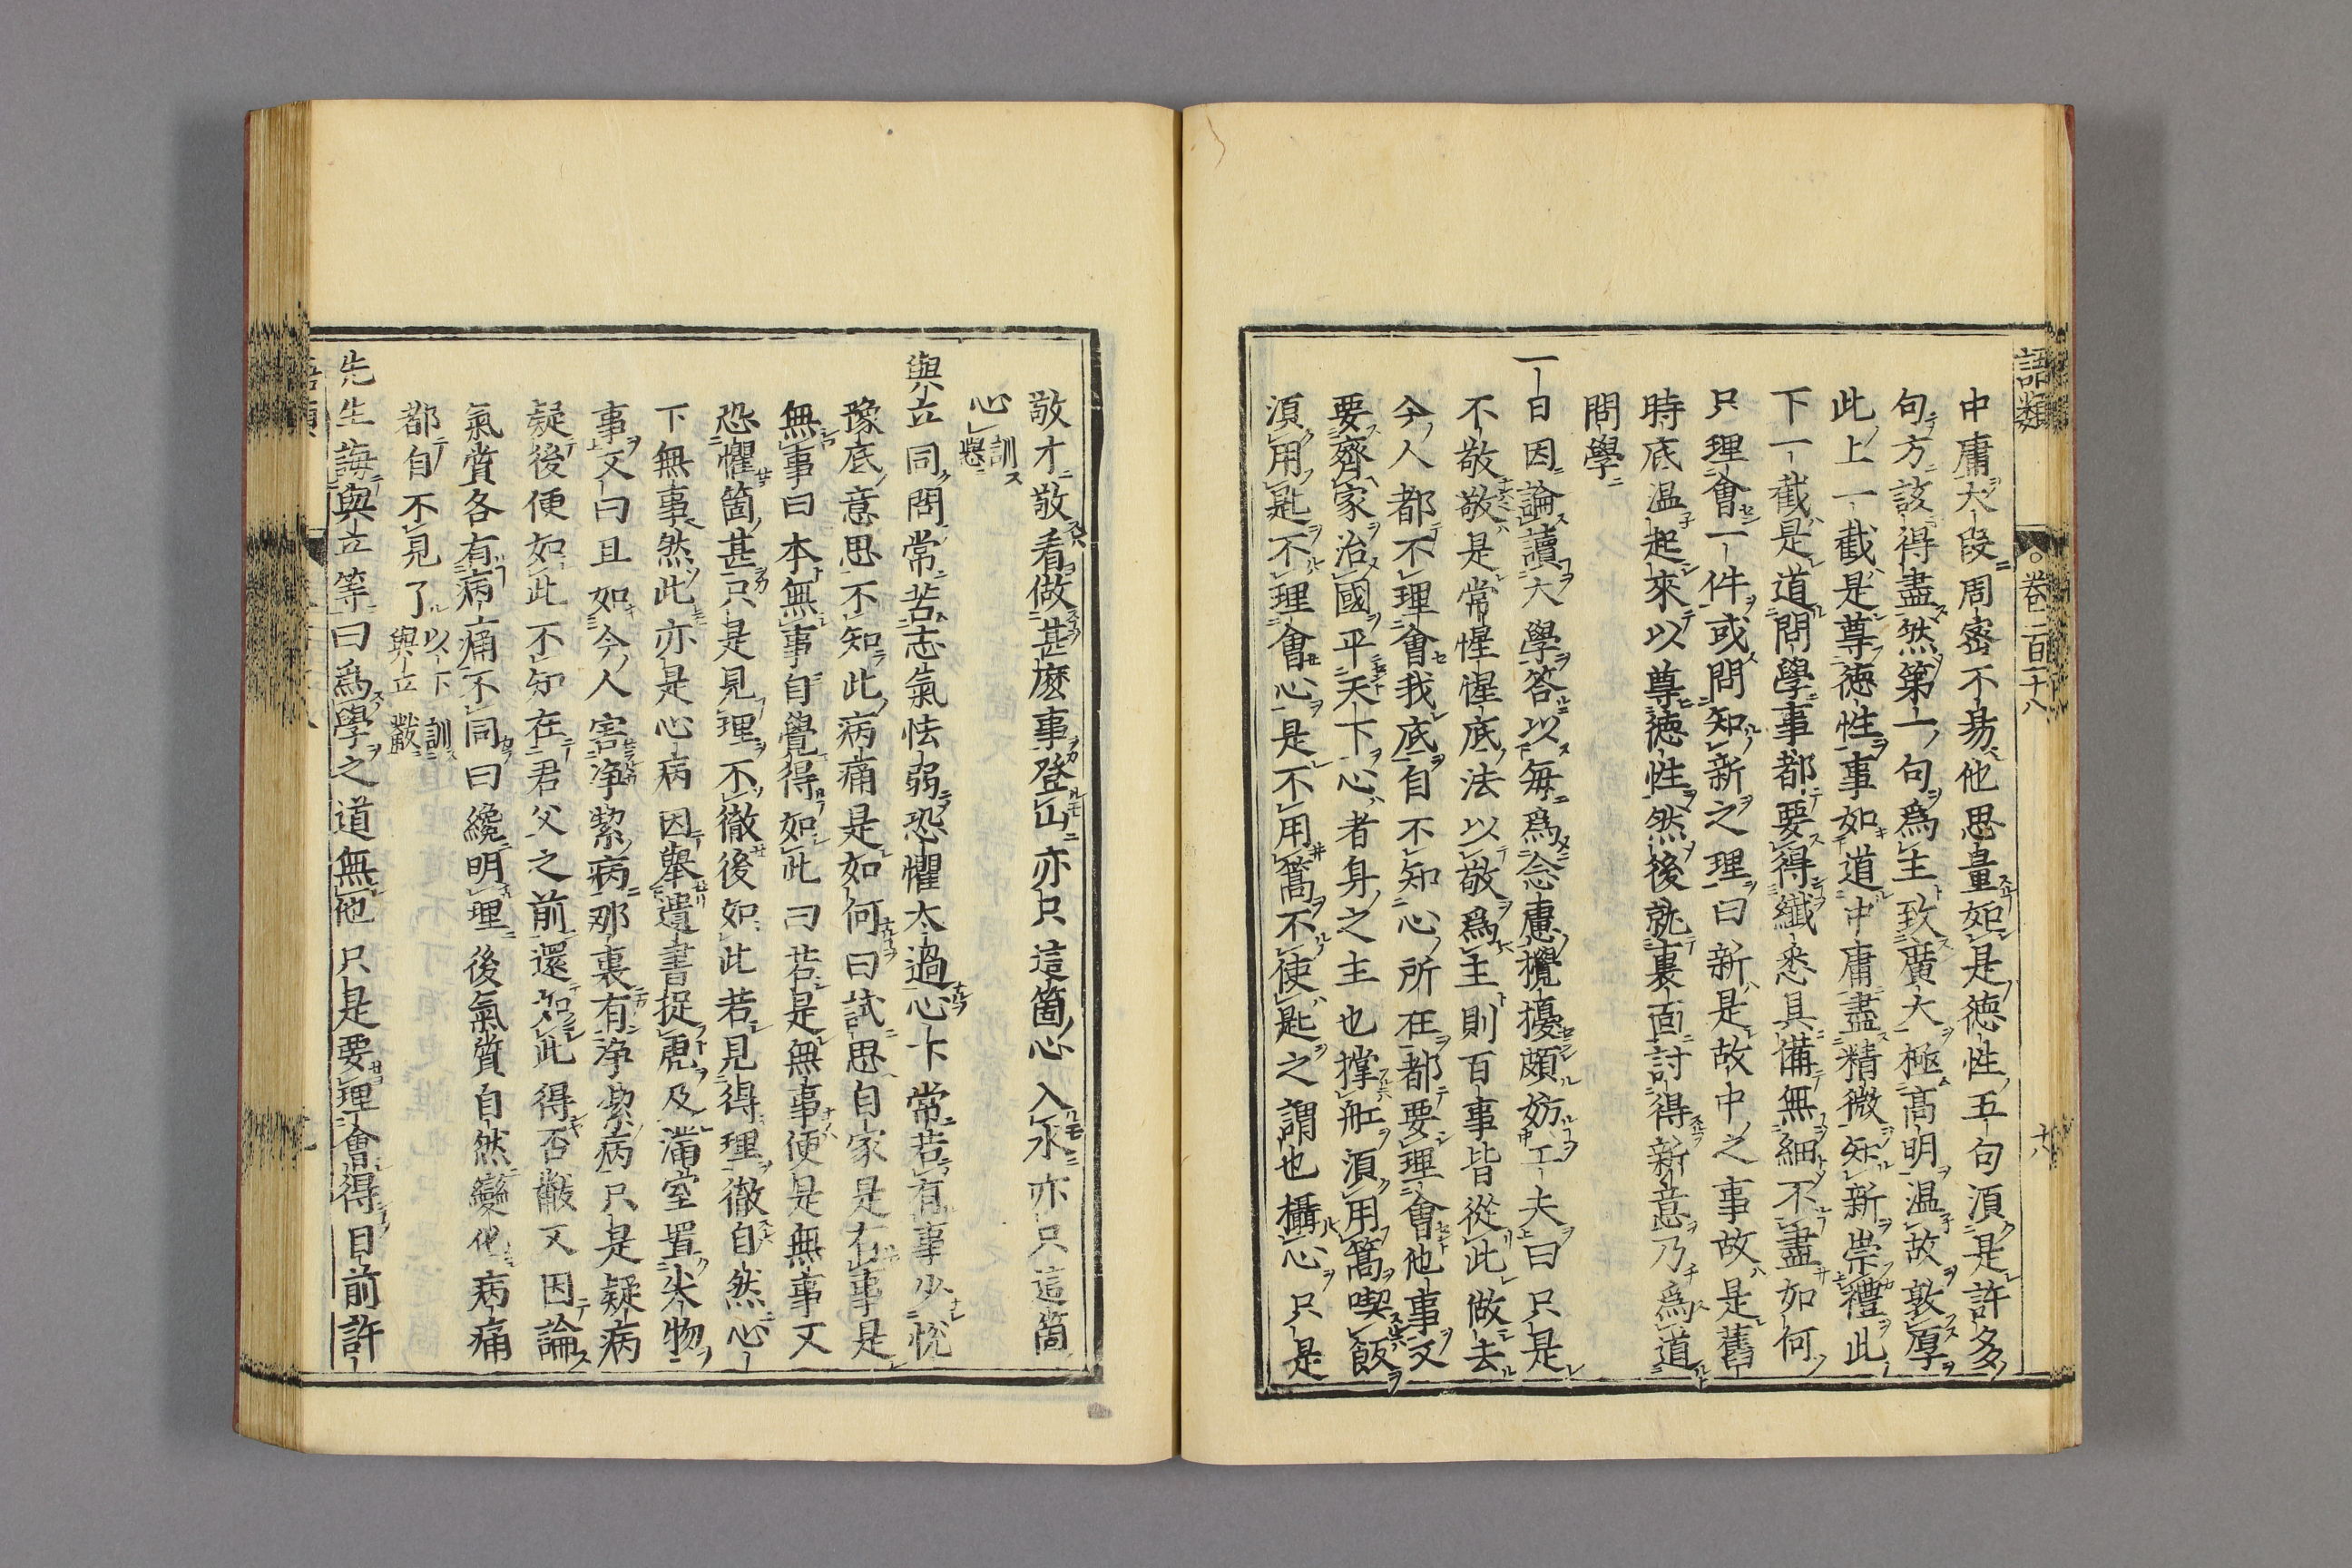 語類 ○卷一百十八 十八
中庸大段周密不易他思量如是德性五句須是許多
句方該得盡然第一句爲主致廣大極高明温故敦厚
此上一截是尊德性事如道中庸盡精微知新崇禮此
下一截是道問學事都要得纖悉具備無細不盡如何
只理會一件或問知新之理曰新是故中之事故是舊
時底温起來以尊德性然後就裏面討得新意乃爲道
問學
一日因論讀大學答以每爲念慮攪擾頗妨工夫曰只是
不敬敬是常惺惺底法以敬爲主則百事皆從此做去
今人都不理會我底自不知心所在都要理會他事又
要齊家治國平天下心者身之主也撑舡須用篙喫飯
須用匙不理會心是不用篙不使匙之謂也攝心只是
敬才敬看做甚麽事登山亦只這箇心入水亦只這箇
心 訓㽦
與立同問常苦志氣怯弱恐懼太過心下常若有事少悅
豫底意思不知此病痛是如何曰試思自家是有事是
無事曰本無事自覺得如此曰若是無事便是無事又
恐懼箇甚只是見理不徹後如此若見得理徹自然心
下無事然此亦是心病因舉遺書捉虎及滿室置尖物
事又曰且如今人害净㓗病那裏有净㓗病只是疑病
疑後便如此不知在君父之前還如此得否黻又因論
氣質各有病痛不同曰纔明理後氣質自然變化病痛
都自不見了 以下訓與立黻
先生誨與立等曰爲學之道無他只是要理會得目前許